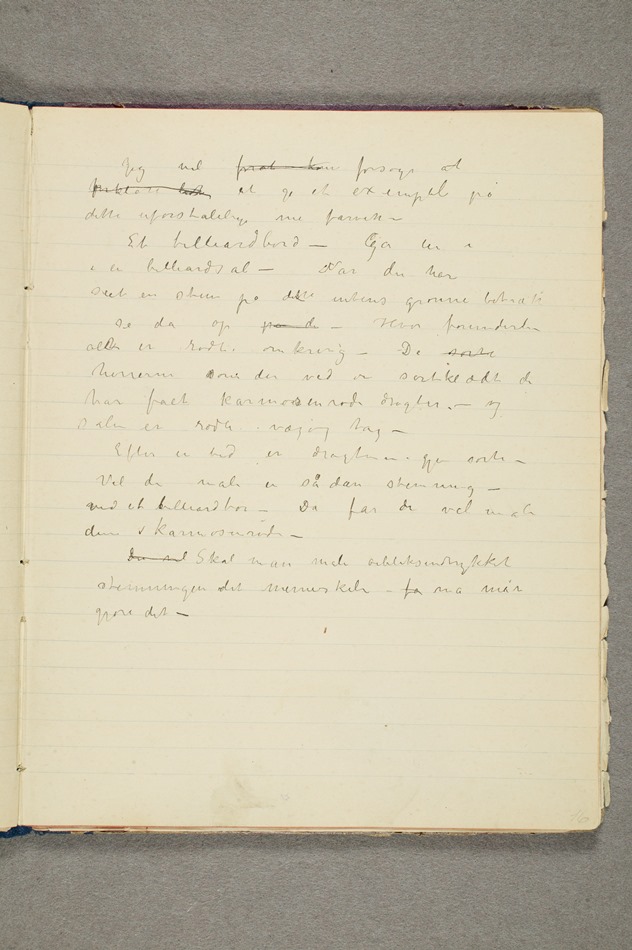 Jeg vil forsøge at
at ge et exempel på
dette uforstålelige med farven –
Et billiardbord – Ga in i
i en billiardsal – Når du har
seet en stun på dette intens grønne betræk
se da op – Hvor forunderlig
alt er rødt omkring – De sorte
herrerne som der ved er sortklædt de
har fået karmosenrøde dragter – og
salen er rødt vægg og tag –
Efter en tid er dragterne igjen sorte –
Vil du male en sådan stemning –
med et billiardbor – Da får du vel male
dem i karmosenrødt –
Skal man male øiebliksindtrykket
stemningen det menneskelige – så må man
gjøre det –